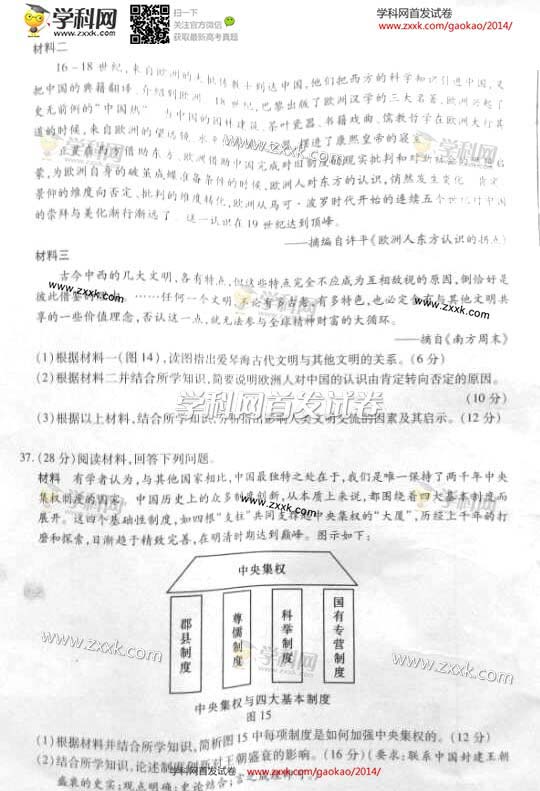 学科网
www.zxxk.com
扫一下
关注官方微信
获取最新高考真题
学科网首发试卷
www.zxxk.com/gaokao/2014/
材料二
16－18世纪，来自欧洲的大批传教士到达中国，他们把西方的科学知识引进中国，又
把中国的典籍翻译、介绍到欧洲。18世纪，巴黎出版了欧洲汉学的三大名著，欧洲兴起了
史无前例的“中国热”。当中国的园林建设、茶叶瓷器、书籍戏曲、儒教哲学在欧洲大行其
道的时候，来自欧洲的望远镜、水
摆进了康熙皇帝的寝宫。
正是
西方借助东方、欧洲借助中国完成对旧制度的现实批判和对新社会的
启
蒙，为欧洲自身的破茧成蝶准备条件的时候，欧洲人对东方的认识，悄然发生变化
肯定、
景仰的维度向否定、批判的维度转化，欧洲从马可·波罗时代开始的连续五个世纪对中国
的崇拜与美化渐行渐远了。这一认识在19世纪达到顶峰。
——摘编自许平《欧洲人东方认识的拐点》
材料三
古今中西的几大文明，各有特点，但这些特点完全不应成为互相敌视的原因，倒恰好是
彼此借鉴的
……任何一个文明，不论有多古老、有多特色，也必定会有与其他文明共
享的一些价值理念，否认这一点，就无法参与全球精神财富的大循环。
——摘自《南方周末》
(1)根据材料一(图14)，读图指出爱琴海古代文明与其他文明的关系。(6分)
(2)根据材料二并结合所学知识，简要说明欧洲人对中国的认识由肯定转向否定的原因。
(10分)
(3)根据以上材料，结合所学知识，分析指出影响人类文明交流的因素及其启示。(12分)
学科网首发试卷
37.(28分)阅读材料，回答下列问题。
材料 有学者认为，与其他国家相比，中国最独特之处在于，我们是唯一保持了两千年中央
集权制度的国家。中国历史上的众多制度创新，从本质上来说，都围绕着四大基本制度而
展开。这四个基础性制度，如四根“支柱”共同支撑起中央集权的“大厦”，历经上千年的打
磨和探索，日渐趋于精致完善，在明清时期达到巅峰。图示如下：
中央集权
郡县制度
尊儒制度
科举制度
国有专营制度
中央集权与四大基本制度
图15
(1)根据材料并结合所学知识，简析图15中每项制度是如何加强中央集权的。(12分)
(2)结合所学知识，论述制度创新对王朝盛衰的影响。(16分)(要求：联系中国封建王朝
盛衰的史实；观点明确；史论结合；言之成理即可。)
学科网首发试卷
www.zxxk.com/gaokao/2014/